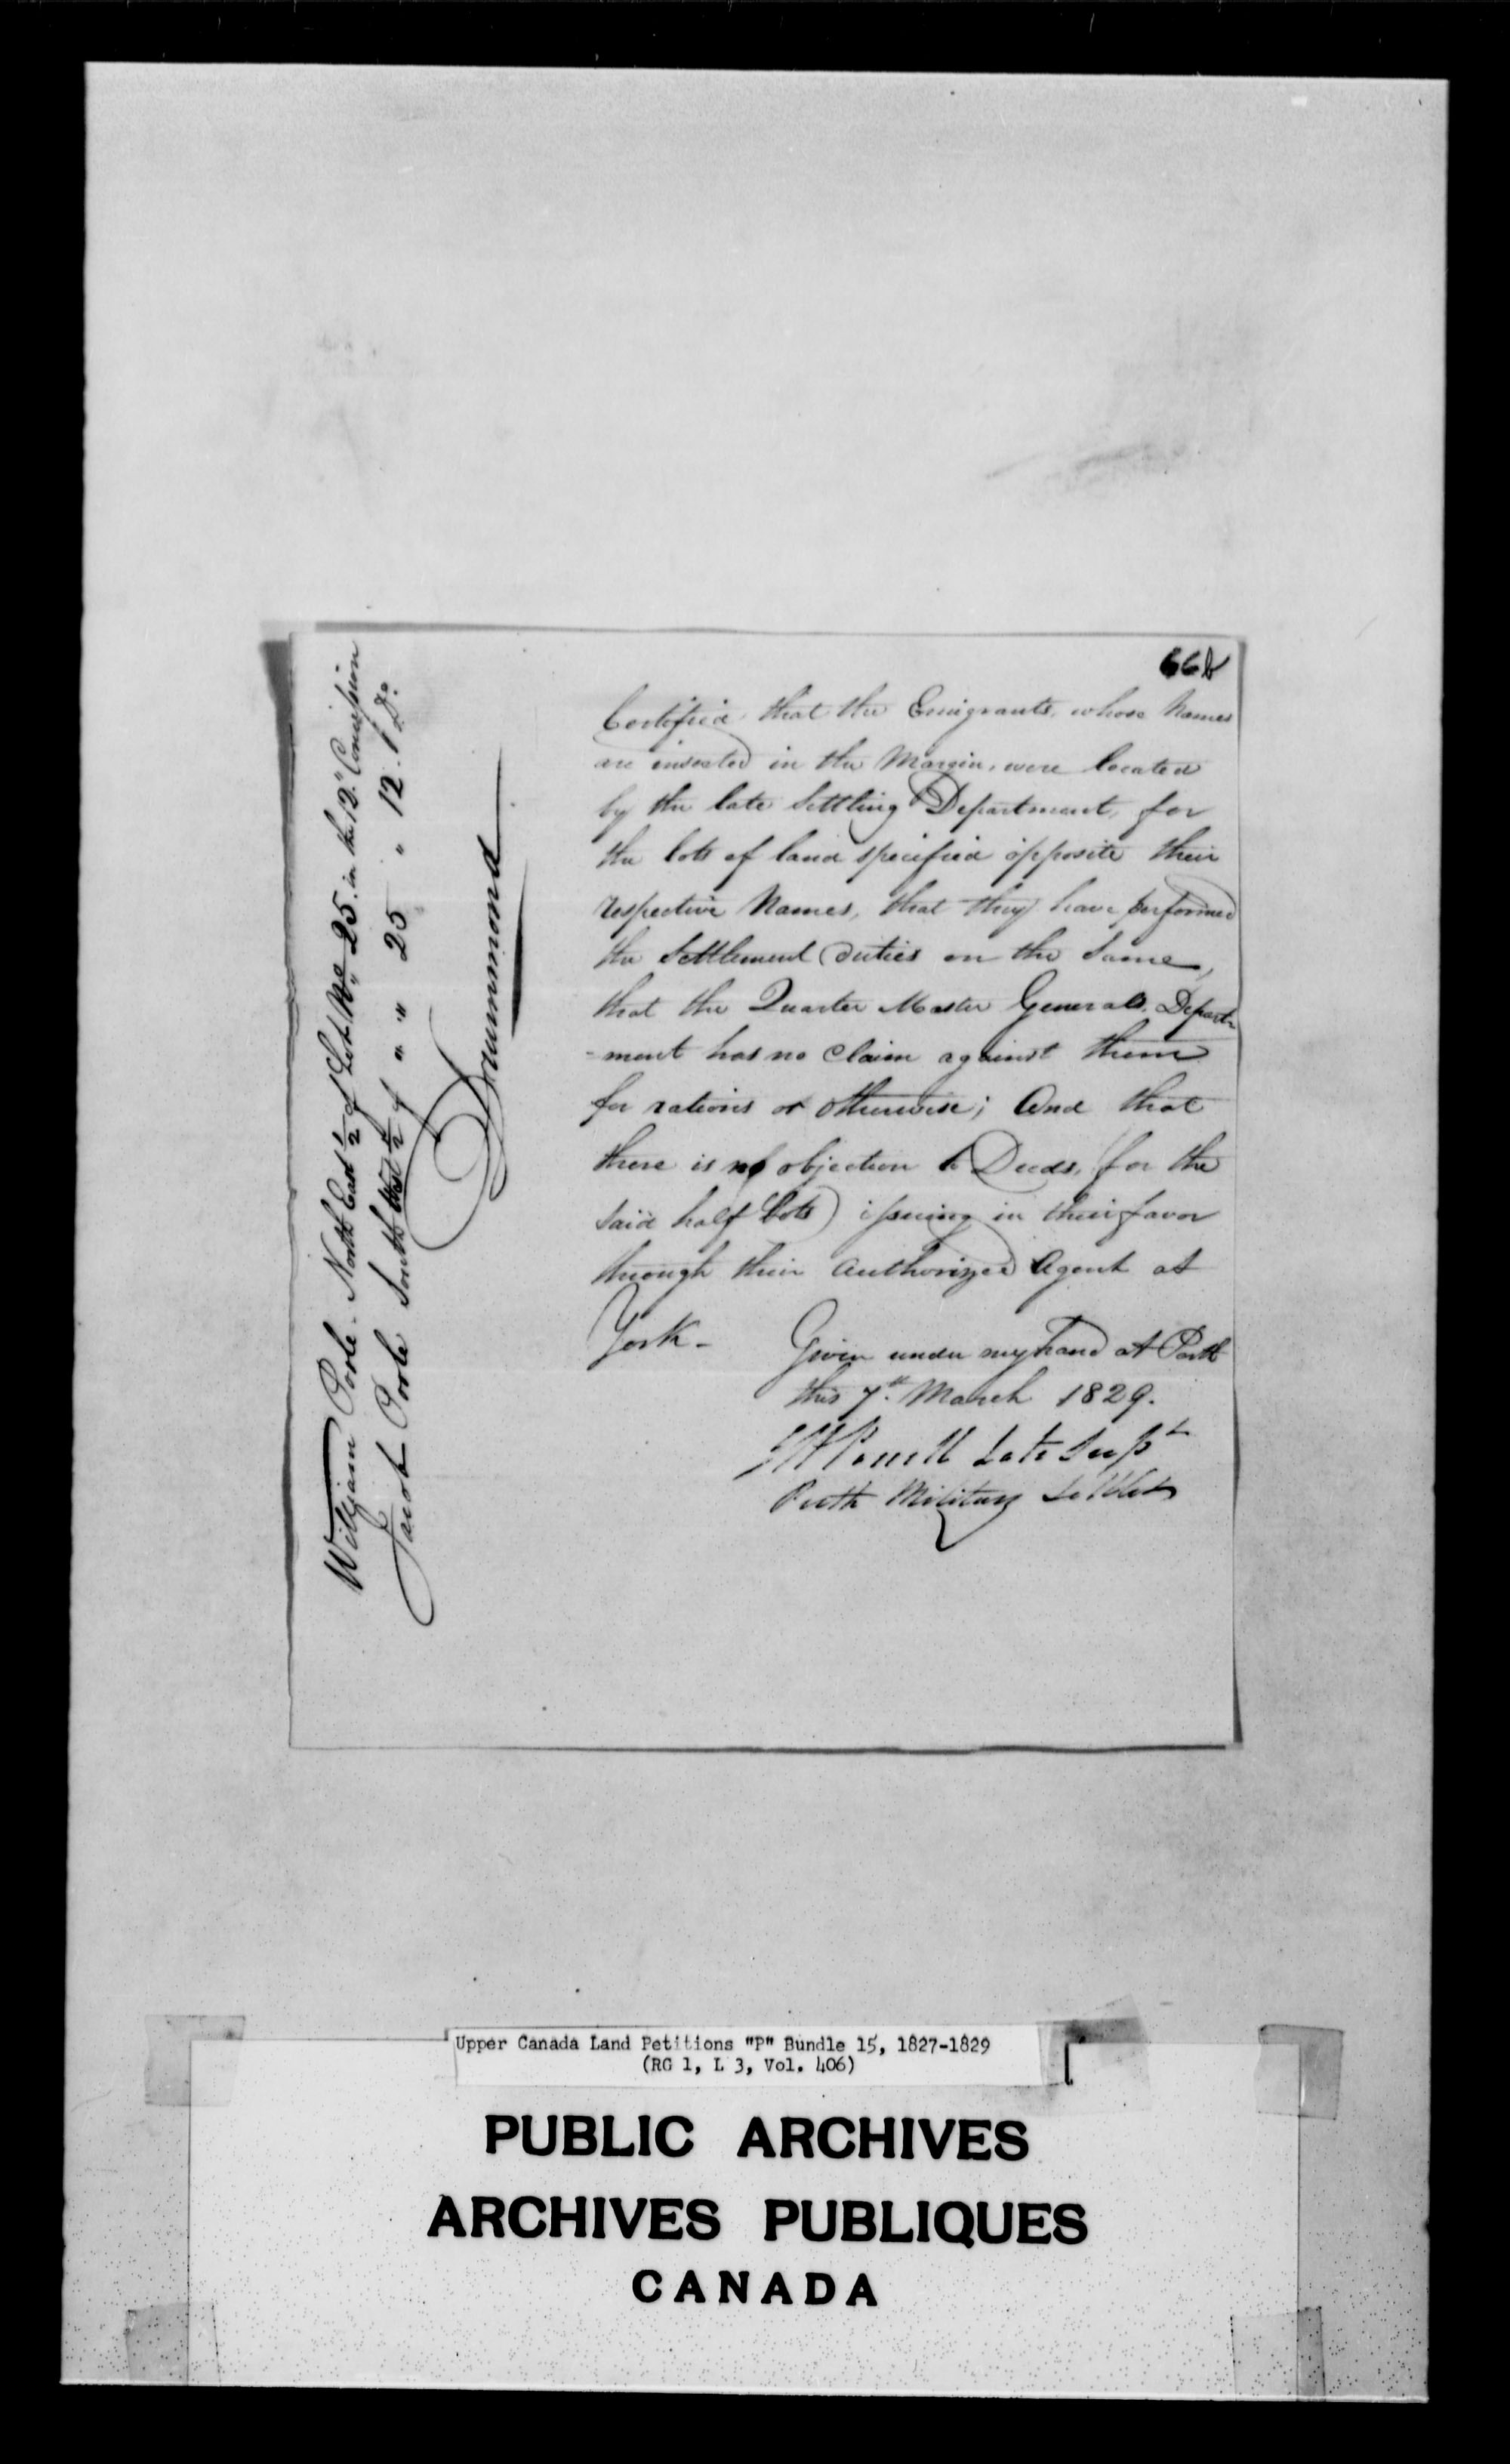 66b
Certified that the Emigrants, whose Names
are inserted in the Margin, were located
by the late Settling Department, for
the lots of land specified opposite their
respective Names, that they have performed
the Settlement Duties on the Same,
that the Quarter Master Generals Depart-
-ment has no Claim against them
for rations or otherwise; And that
there is no objection to Deeds, for the
said half lots issuing in their favor
through their Authorized Agent at
York - Given under my hand at Perth
this 7th March 1829.
Powell Late Supt
Perth Military Settlet
William Poole - North East ½ of Lot No 25. in the 12th Concession
Jacob Poole South West ½ of " " 25 " 12. Do
Drummond
Upper Canada Land Petitions "P" Bundle 15, 1827-1829
(RG 1, L 3, Vol. 406)
PUBLIC ARCHIVES
ARCHIVES PUBLIQUES
CANADA